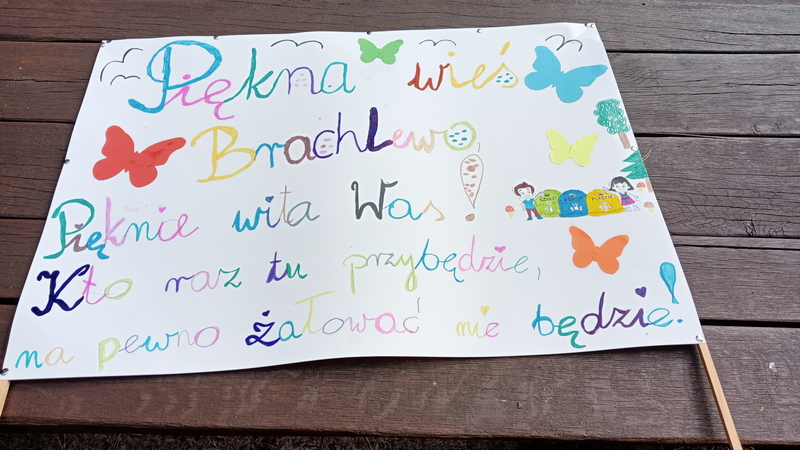 Piękna wieś
Brachlewo,
Pięknie wita Was!
Kto raz tu przybędzie,
na pewno żałować nie będzie!
SZKŁO PAPIER PLASTIK